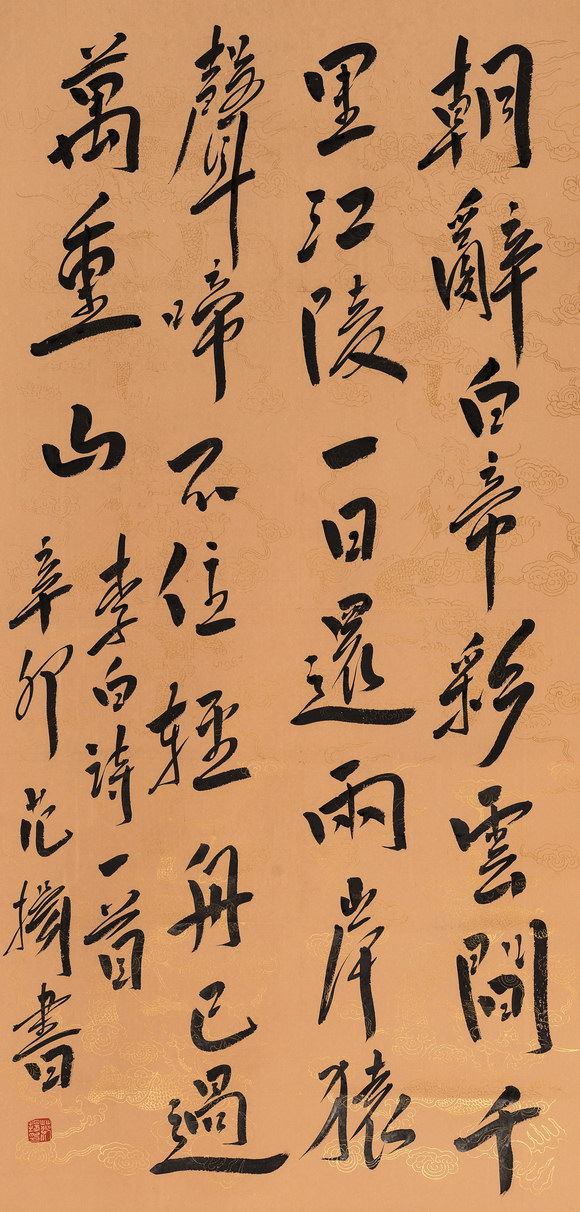 朝辭白帝彩雲間千
里江陵一日還兩岸猿
聲啼不住輕舟已過
萬重山
李白詩一首
辛卯范擕書